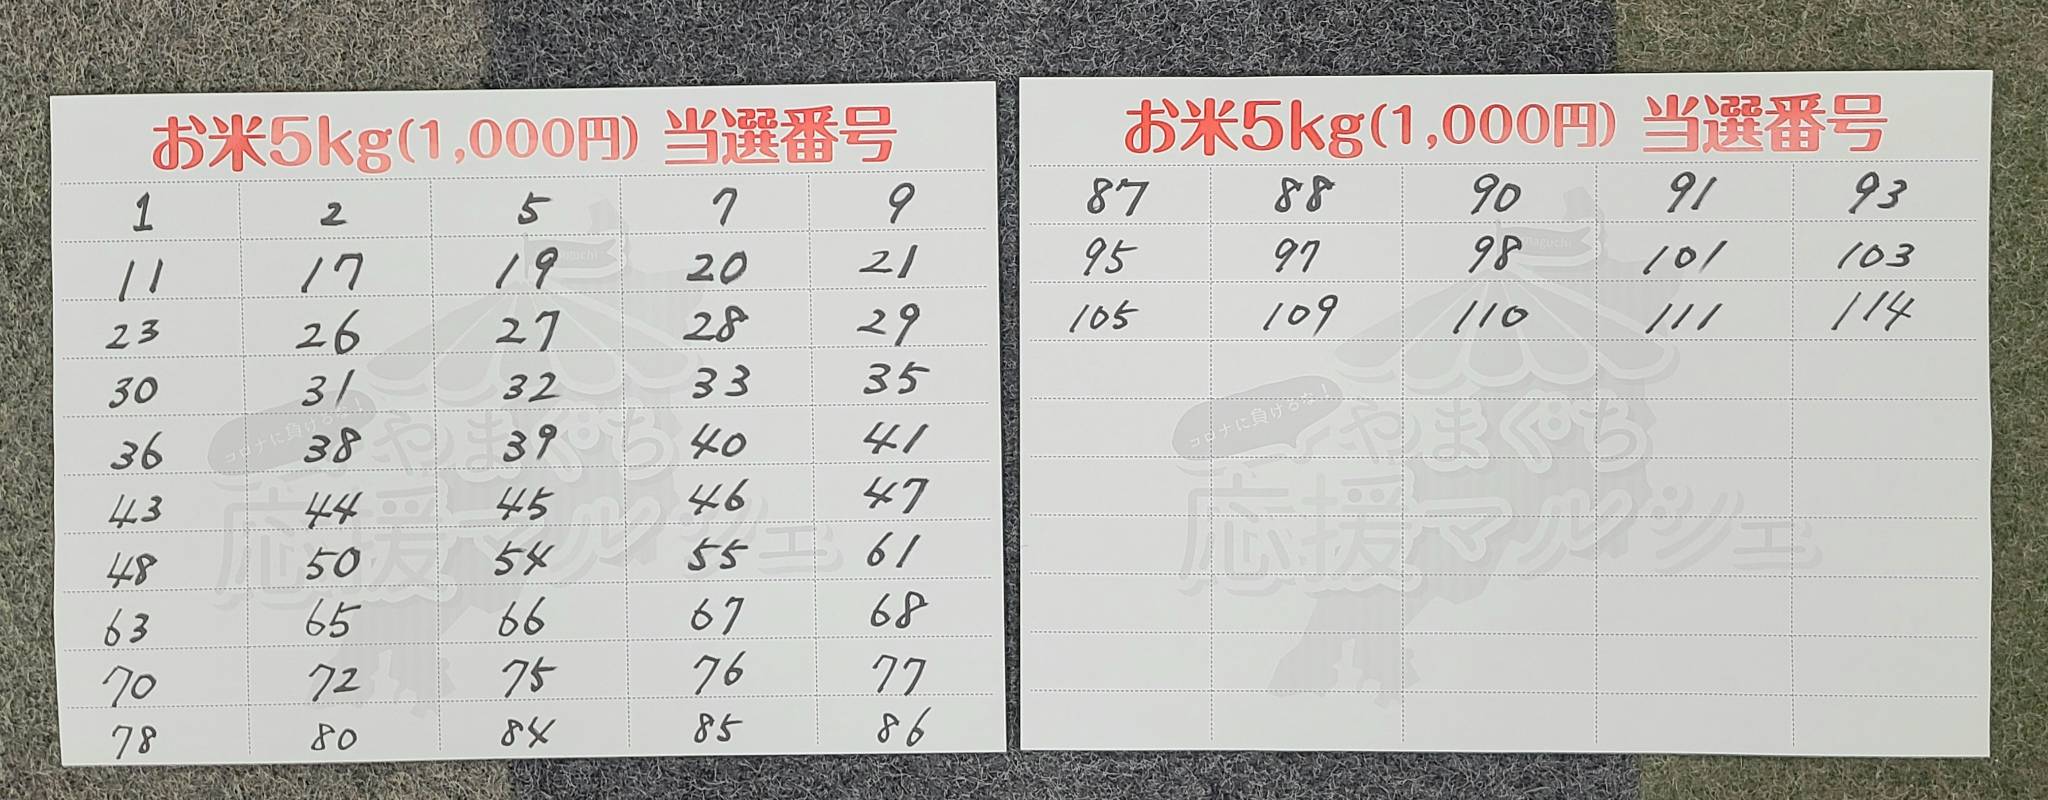 お米5kg(1,000円) 当選番号
1 2 5 7 9
11 17 19 20 21
23 26 27 28 29
30 31 32 33 35
36 38 39 40 41
43 44 45 46 47
48 50 54 55 61
63 65 66 67 68
70 72 75 76 77
78 80 84 85 86
コロナに負けるな!
やまぐち
応援マルシェ
お米5kg(1,000円) 当選番号
87 88 90 91 93
95 97 98 101 103
105 109 110 111 114
コロナに負けるな!
やまぐち
応援マルシェ